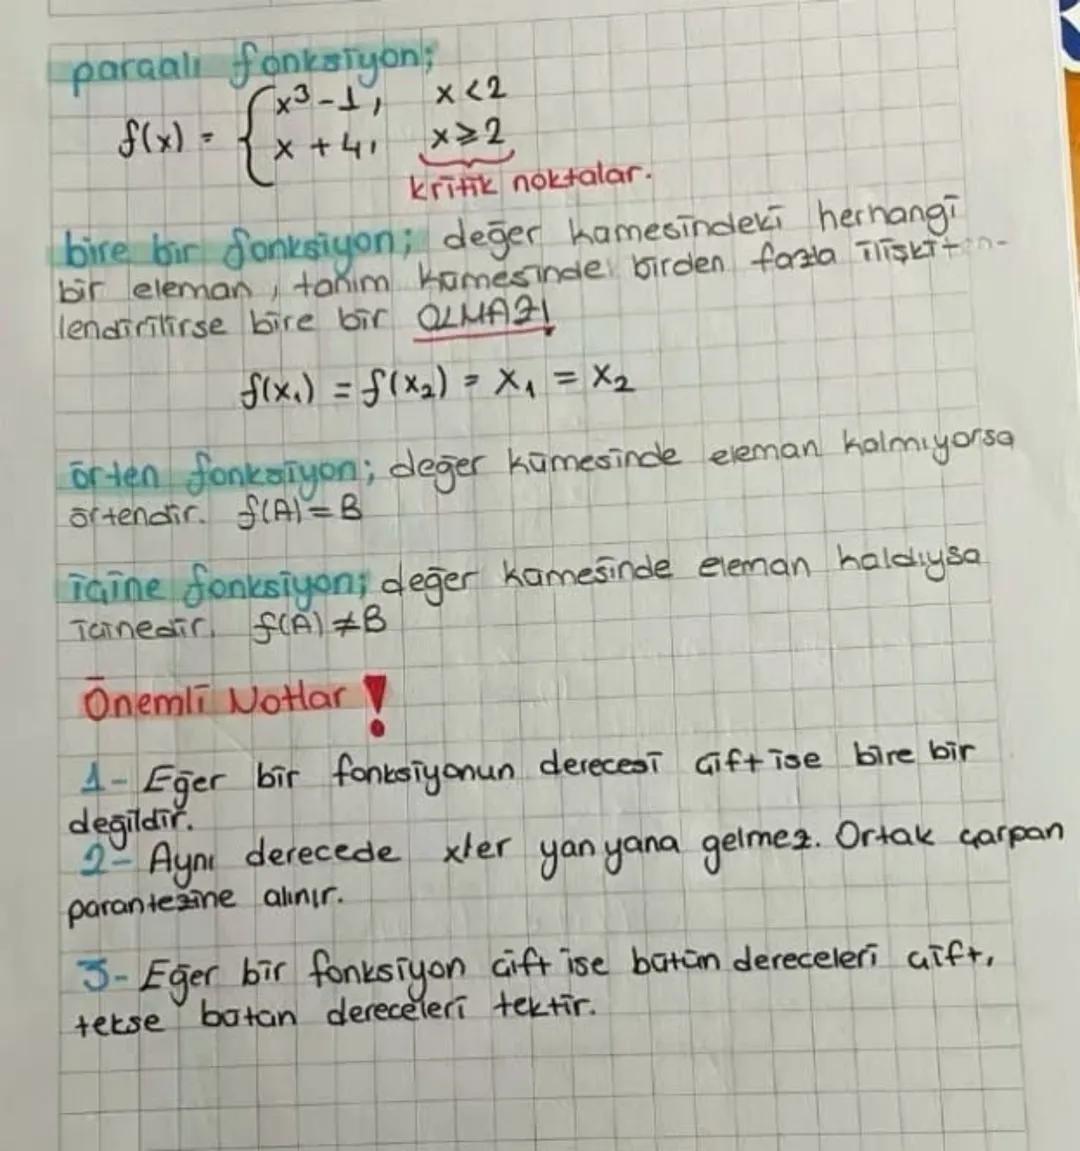 parçalı fonksiyon;
f(x) = { x³ - 1, x < 2
x + 4, x ≥ 2
kritik noktalar.
bire bir fonksiyon; değer kümesindeki herhangi
bir eleman, tanım kümesinde birden fazla ilişkiten-
lendirilirse bire bir OLMAZ!
f(x₁) = f(x₂) = x₁ = x₂
örten fonksiyon; değer kümesinde eleman kalmıyorsa
örtendir. f(A) = B
içine fonksiyon; değer kümesinde eleman kaldıysa
içinedir. f(A) ≠ B
Önemli Notlar !
1- Eğer bir fonksiyonun derecesi çift ise bire bir
değildir.
2- Aynı derecede x'ler yan yana gelmez. Ortak çarpan
parantezine alınır.
3- Eğer bir fonksiyon çift ise bütün dereceleri çift,
tekse bütün dereceleri tektir.